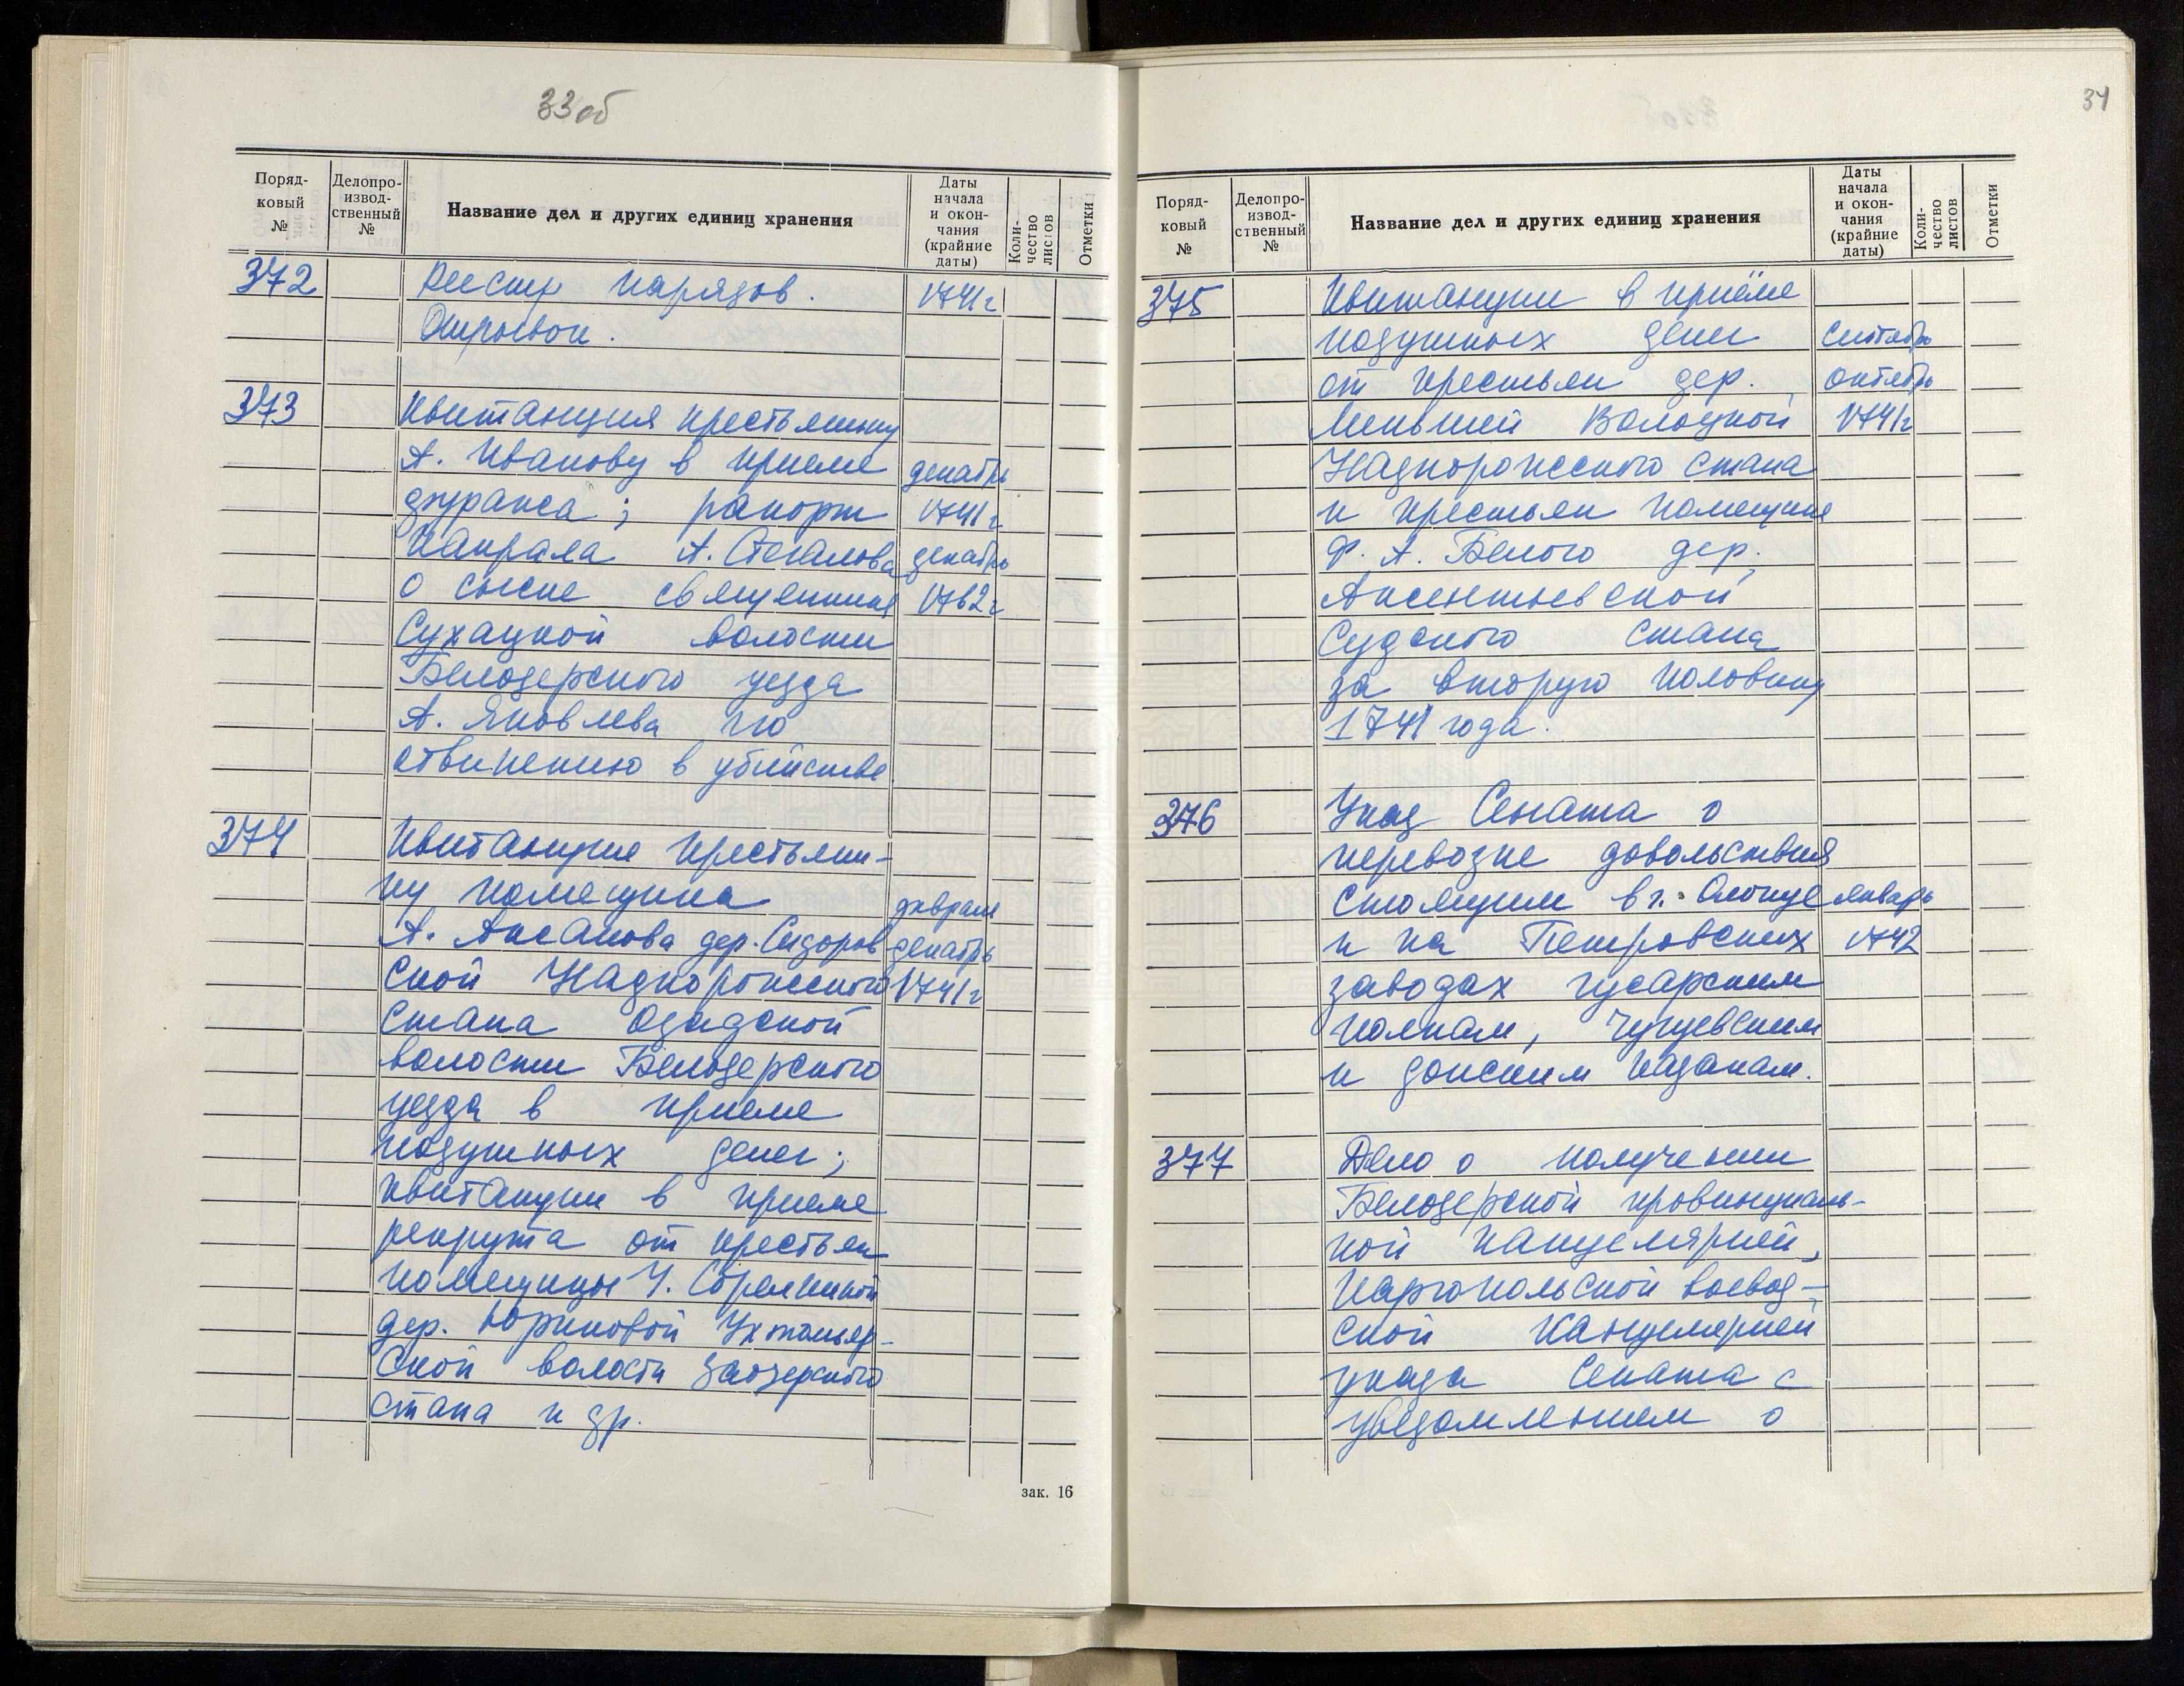 33об
Поряд-
ковый
№
Делопро-
извод-
ственный
№
Название дел и других единиц хранения
Даты
начала
и окон-
чания
(крайние
даты)
Коли-
чество
листов
Отметки
372 Реестр нарядов. 1741г
Отрывок.
373 Квитанция крестьянину
А. Иванову в приеме декабрь
фуража; рапорт 1741г
капрала А. декабрь
о сыске священника 1762г
Сухацкой волости
Белозерского уезда
А. Яковлева по
обвинению в убийстве
374 Квитанция крестьяни-
ну помещика февраль
А. Аксакова дер. Сидоров декабрь
ской Надпорожского 1741г
стана Озадской
волости Белозерского
уезда в приеме
подушных денег;
квитанции в приеме
рекрута от крестьян
помещицы У.
дер. Юриновой Ухтомьяр-
ской волости Заозерского
стана и др.
зак. 16
34
Поряд-
ковый
№
Делопро-
извод-
ственный
№
Название дел и других единиц хранения
Даты
начала
и окон-
чания
(крайние
даты)
Коли-
чество
листов
Отметки
375 Квитанции в приёме
подушных денег сентябрь
от крестьян дер. октябрь
Меньшей Волоцкой 1741г
Надпорожского стана
и крестьян помещика
Ф. А. Белого дер.
Аксентьевской
Судского стана
за вторую половину
1741 года.
376 Указ Сената о
перевозке довольствия
стоящим в г. Олонце январь
и на Петровских 1742
заводах гусарским
полкам, чугуевским
и донским казакам.
377 Дело о получении
Белозерской провинциаль-
ной канцелярией,
Каргопольской воевод-
ской канцелярией
указа Сената с
уведомлением о